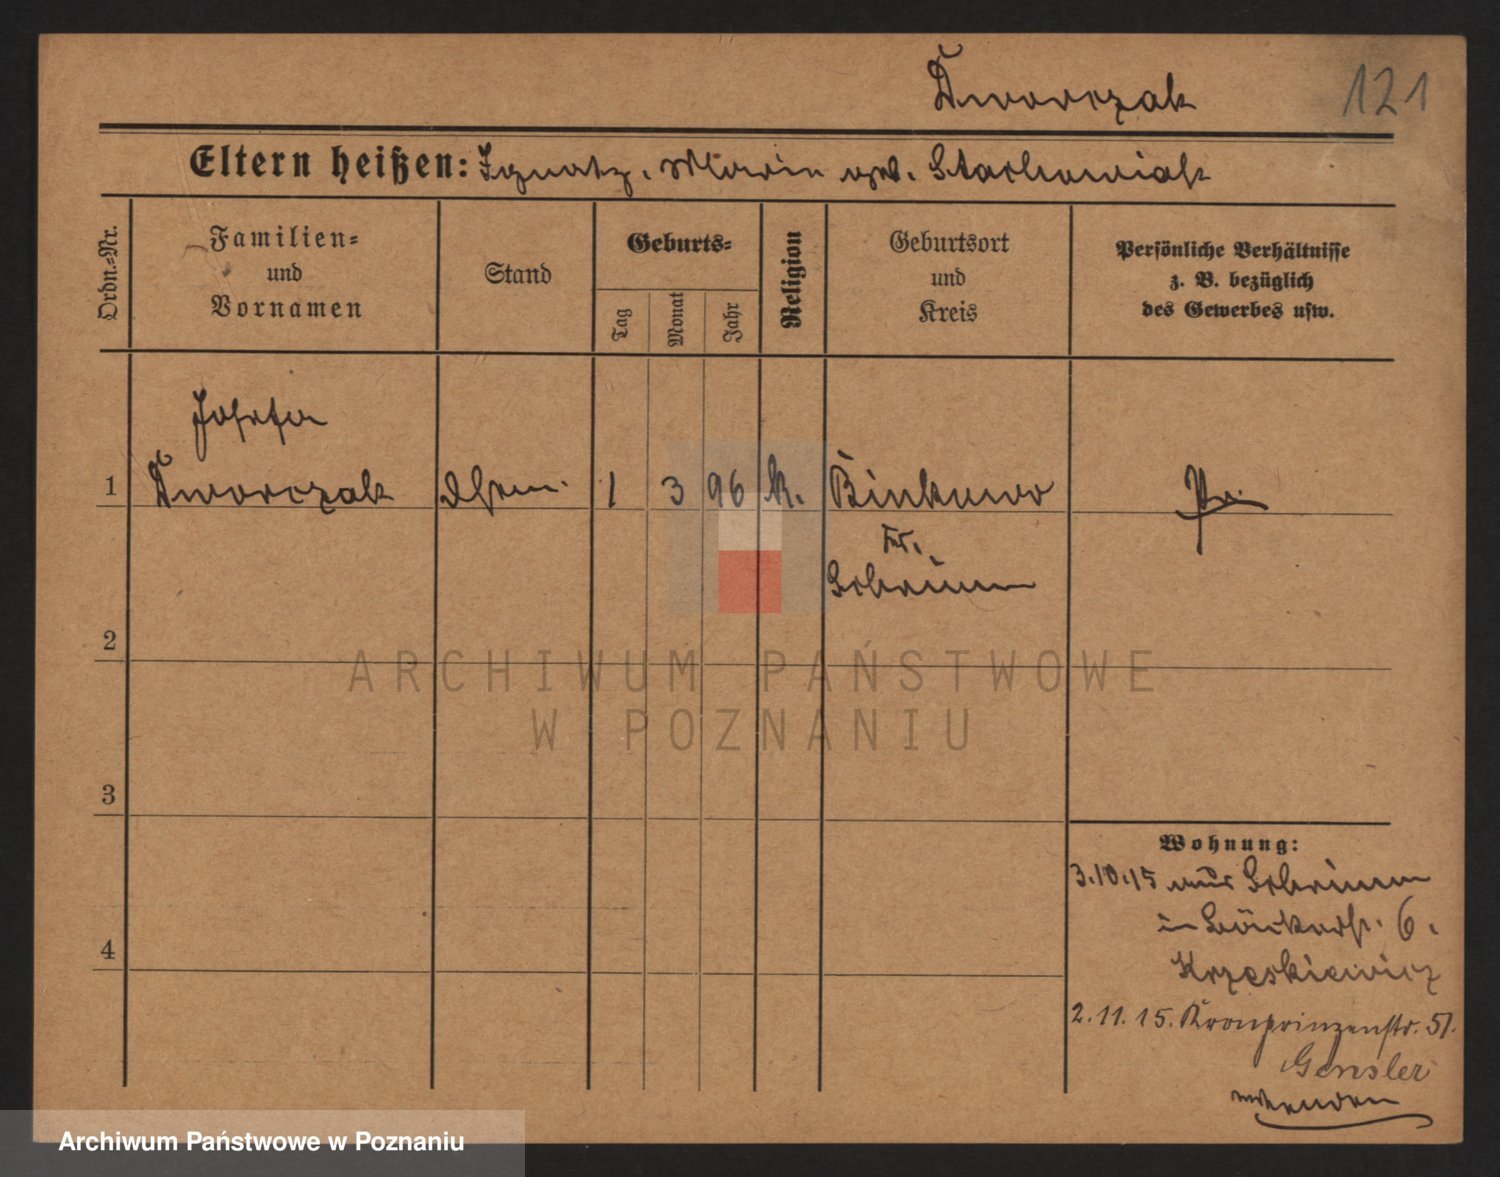 Dworczak
121
Eltern heißen: Ignatz, Marie geb. Stachowiak
Ordn.-Nr.
Familien-
und
Vornamen
Stand
Geburts-
Tag
Monat
Jahr
Religion
Geburtsort
und
Kreis
Persönliche Verhältnisse
z. B. bezüglich
des Gewerbes usw.
Josefa
1 Dworczak 1 3 96 k. Binkowo Pr.
Schrimm
2
3
4
Wohnung:
3.10.15 aus Schrimm
in Bäckerstr. 6.
Krzeskiewicz
2.11.15. Kronprinzenstr. 51.
Gensler
wenden
ARCHIWUM PAŃSTWOWE
W POZNANIU
Archiwum Państwowe w Poznaniu